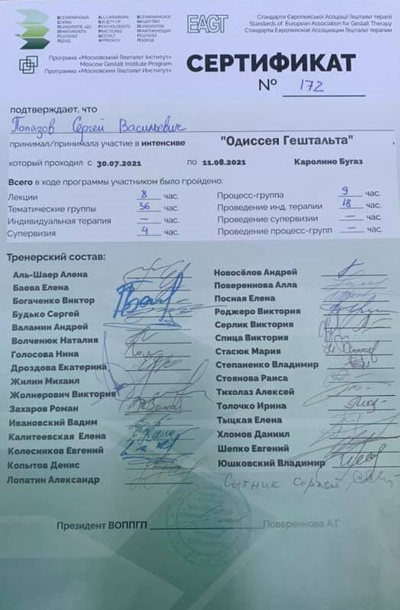 ВСЕУКРАЇНСЬКА
ALL-UKRAINIAN
SOCIETY OF
PSYCHOLOGISTS
PRACTICING
GESTALT
APPROACH
EAGT
Стандарти Європейської Асоціації Гештальт терапії
Standards of European Association for Gestalt Therapy
Стандарты Европейской Ассоциации Гештальт терапии
Програма «Московський Гештальт Інститут»
Moscow Gestalt Institute Program
Программа «Московский Гештальт Институт»
СЕРТИФИКАТ
№ 172
подтверждает, что
Попазов Сергей Васильевич
принимал/принимала участие в интенсиве "Одиссея Гештальта"
который проходил с 30.07.2021 по 11.08.2021 Каролино Бугаз
Всего в ходе программы участником было пройдено:
Лекции 8 час.
Тематические группы 36 час.
Индивидуальная терапия — час.
Супервизия 4 час.
Процесс-группа 9 час.
Проведение инд. терапии 18 час.
Проведение супервизии — час.
Проведение процесс-групп — час.
Тренерский состав:
Аль-Шаер Алена
Баева Елена
Богаченко Виктор
Будько Сергей
Валамин Андрей
Волченюк Наталия
Голосова Нина
Дроздова Екатерина
Жилин Михаил
Жолнерович Виктория
Захаров Роман
Ивановский Вадим
Калитеевская Елена
Колесников Евгений
Копытов Денис
Лопатин Александр
Новосёлов Андрей
Повереннова Алла
Посная Елена
Роджеро Виктория
Серлик Виктория
Спица Виктория
Стасюк Мария
Степаненко Владимир
Стоянова Раиса
Тихолаз Алексей
Толочко Ирина
Тыцкая Елена
Хломов Даниил
Шепко Евгений
Юшковский Владимир
Сытник Сергей
Президент ВОППГП
Повереннова А.Г.